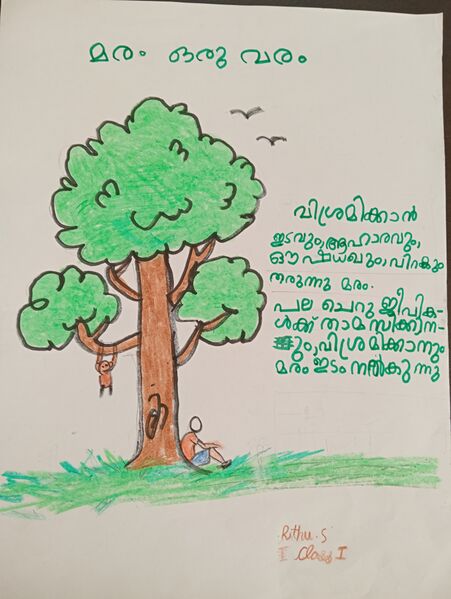 മരം ഒരു വരം
വിശ്രമിക്കാൻ
ഇടവും,ആഹാരവും,
ഔഷധവും,വിറകും
തരുന്നു മരം.
പല ചെറു ജീവിക-
ൾക്ക് താമസിക്കാന-
ും,വിശ്രമിക്കാനും
മരം ഇടം നൽകുന്നു
Rithu.S
Class I